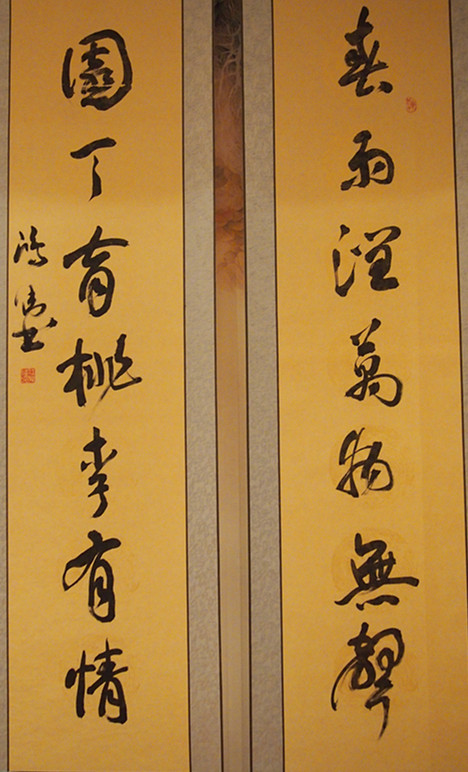 春雨潤萬物無聲
園丁育桃李有情